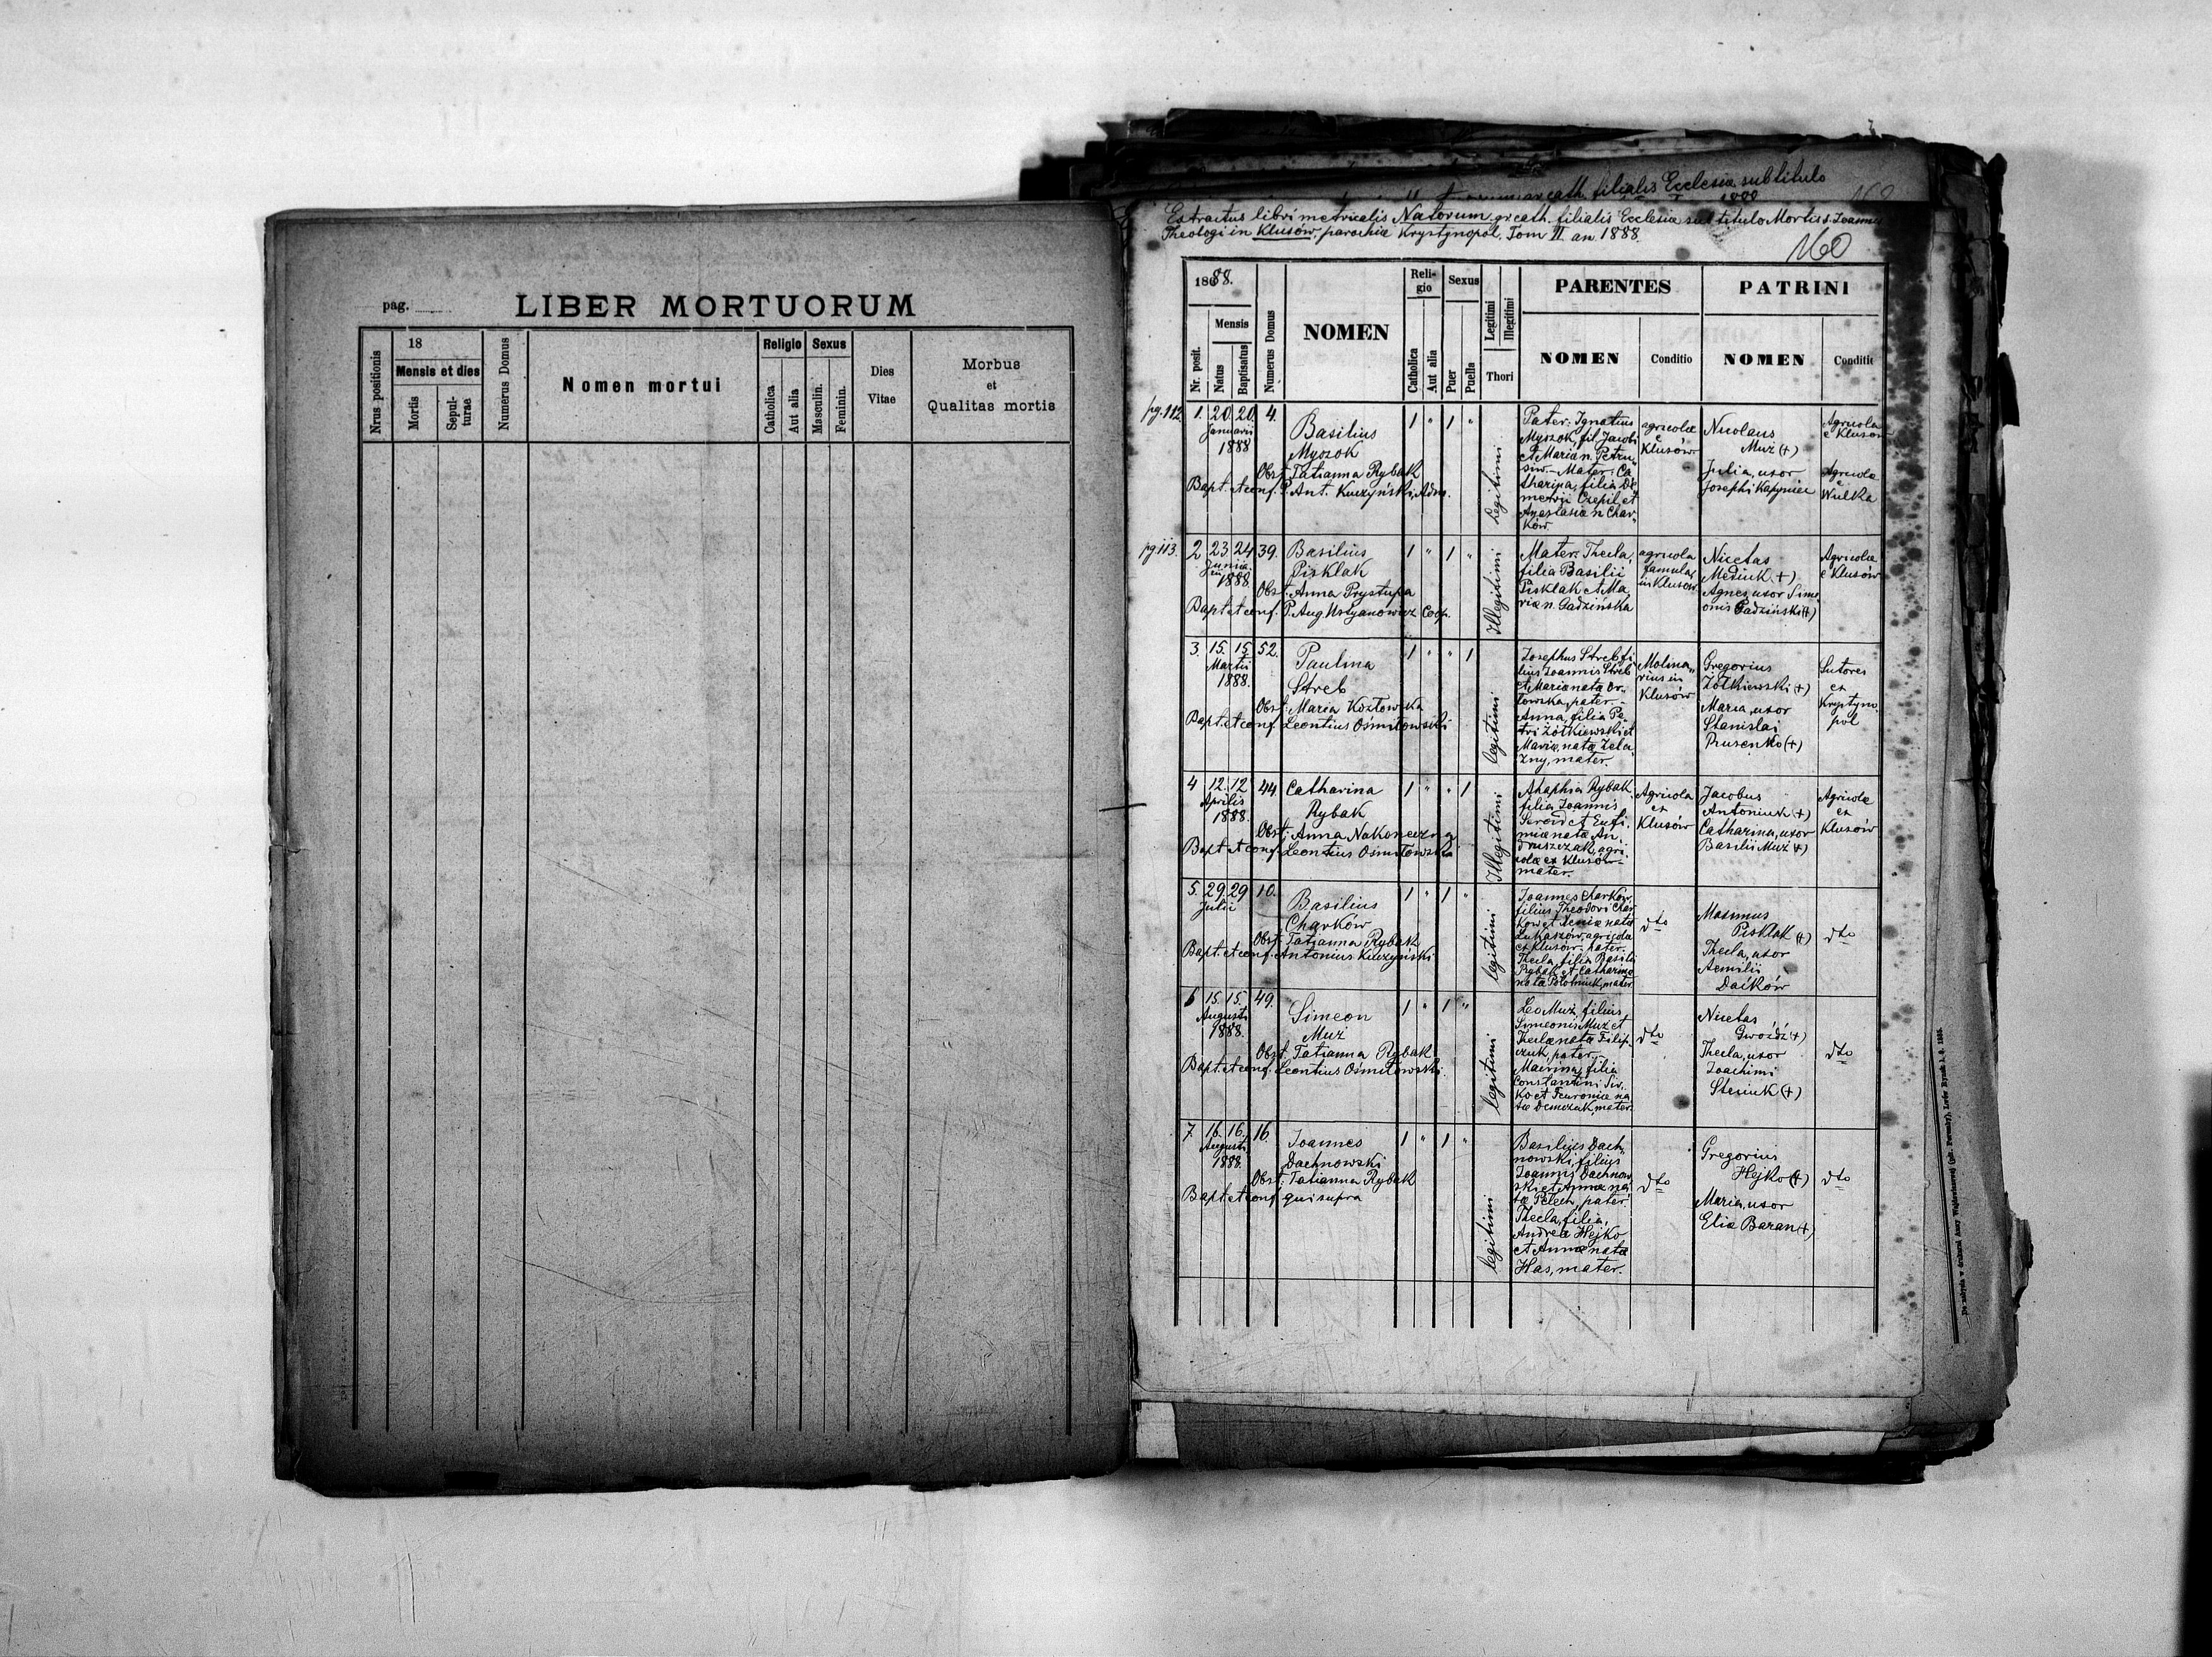 pag.
LIBER MORTUORUM
Nrus positionis
18
Mensis et dies
Mortis
Sepul-
turae
Numerus Domus
Nomen mortui
Religio
Catholica
Aut alia
Sexus
Masculin.
Feminin.
Dies
Vitae
Morbus
et
Qualitas mortis
filialis Ecclesiæ subtitulo
Extractus libri metricalis Natorum gr. cath. filialis Ecclesiæ sub titulo Mortis s. Joannis
Theologi in Klusów, parochiæ Krystynopol, Tom II an 1888.
160
1888.
Nr. posit.
Mensis
Natus
Baptisatus
Numerus Domus
NOMEN
Reli-
gio
Catholica
Aut alia
Sexus
Puer
Puella
Legitimi
Illegitimi
Thori
PARENTES
NOMEN
Conditio
PATRINI
NOMEN
Conditio
pg. 112.
1. 20. 20. 4.
Januarii
1888
Basilius
Myszok
Obst. Tatianna Rybak
Bapt. et conf. P. Ant. Kuczyński, Adm.
1 " 1 "
Legitimi
Pater: Ignatius
Myszok, fil. Jacobi
et Mariæ n. Petru-
siw. – Mater: Ca
tharina, filia De
metrii Czepil et
Anastasiæ n Char-
ków.
agricolæ
e
Klusów
Nicolaus
Muż (+)
Julia, uxor
Josephi Kapyniec
Agricola
e Klusów
Agricolæ
e
Wulka
pg 113.
2 23 24 39.
Junii
1888.
Basilius
Pisklak
Obst. Anna Prystupa
Bapt. et conf. P. Aug. Ustyanowicz Coop.
1 " 1 "
Illegitimi
Mater: Thecla,
filia Basilii
Pisklak et Ma
riæ n. Gadzińska
agricola
famula,
in Klusów
Nicetas
Meduk (+)
Agnes, uxor Sime
onis Gadziński (+)
Agricolæ
e Klusów
3. 15. 15. 52.
Martii
1888.
Paulina
Streb
Obst. Maria Kozłowska
Bapt. et conf. Leontius Ośmiłowski
1 " " 1
legitimi
Josephus Streb fi
lius Joannis Streb
et Mariæ nata Or-
łowska, pater. –
Anna, filia Pe
tri Żółkiewski et
Mariæ, natæ Zela
zny, mater.
Molina-
rius in
Klusów
Gregorius
Żółkiewski (+)
Maria, uxor
Stanislai
Prusenko (+)
Sutores
ex
Krystyno
pol
4 12. 12 44.
Aprilis
1888.
Catharina
Rybak
Obst. Anna Nakoneczna
Bapt. et conf. Leontius Ośmiłowski
1 " " 1
Illegitimi
Ahaphia Rybak
filia Joannis
et Eufi.
miæ nata An
druszczak, agri
colæ ex Klusów –
mater.
Agricola
ex
Klusów
Jacobus
Antoniuk (+)
Catharina, uxor
Basilii Muż (+)
Agricolæ
ex
Klusów
5. 29. 29 10.
Julii
Basilius
Charków
Obst. Tatianna Rybak
Bapt. et conf. Antonius Kuczyński
1 " 1 "
legitimi
Joannes Charków,
filius Theodori Char
ków et nata
Łukaszów, agricola
ex Klusów – pater.
Thecla, filia Basilii
Rybak et Catharinæ
mater.
dto
Maximus
Pisklak (+)
Thecla, uxor
Aemilii
Daćków
dto
6 15. 15. 49.
Augusti
1888.
Simeon
Muż
Obst. Tatianna Rybak
Bapt. et conf. Leontius Ośmiłowski.
1 " 1 "
legitimi
Leo Muż, filius
Simeonis Muż et
Theclæ nata Filip-
czuk, pater –
filia
Constantini Siw.
ko et Fevroniæ na
tæ Demczuk, mater.
dto
Nicetas
Gwóźdź (+)
Thecla, uxor
Joachimi
Steciuk (+)
dto
7. 16. 16. 16.
Augusti
1888.
Joannes
Dachnowski
Obst. Tatianna Rybak
Bapt. et conf. qui supra
1 " 1 "
legitimi
Basilius Dach-
nowski, filius
Joannis Dachnow
ski et Annæ na
tæ Pelech, pater.
Thecla, filia,
Andreæ Hejko
et Annæ natæ
Has, mater.
dto
Gregorius
Hejko (+)
Maria, uxor
Eliæ Baran (+)
dto